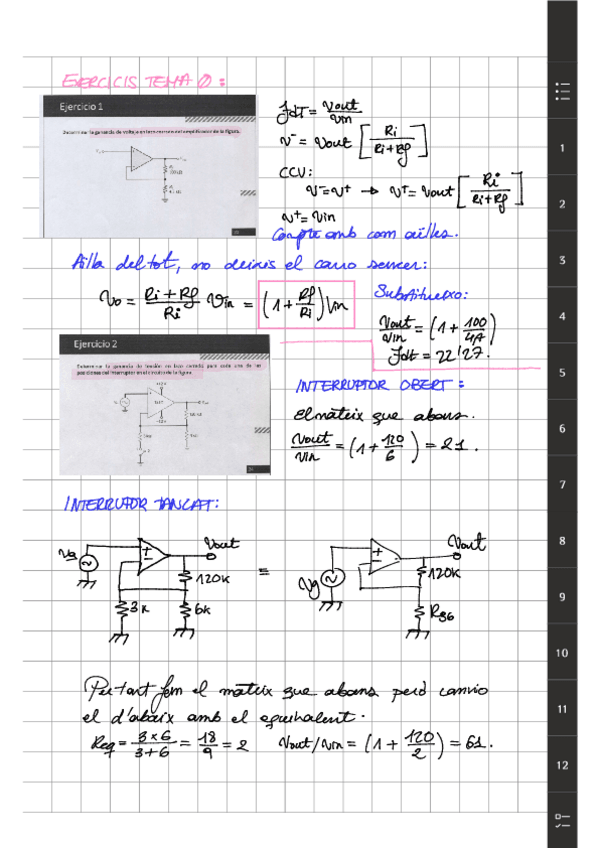 EXERCICIS TEMA 0:
Ejercicio 1
Determinar la ganancia de voltaje en lazo cerrado del amplificador de la figura.
FdT = Vout/Vin
V⁻ = Vout [Ri/(Ri+Rf)]
CCV:
V⁻=V⁺ → V⁺ = Vout [Ri/(Ri+Rf)]
V⁺ = Vin
Compte amb com aïlles.
Aïlla del tot, no deixis el canvi sencer:
Vo = (Ri+Rf)/Ri Vin = (1 + Rf/Ri) Vin
Substitueixo:
Vout/Vin = (1 + 100/4,7)
Fdt = 22'27.
Ejercicio 2
Determinar la ganancia de tensión en lazo cerrado para cada una de las
posiciones del interruptor en el circuito de la figura.
INTERRUPTOR OBERT:
El mateix que abans.
Vout/Vin = (1 + 120/6) = 21.
INTERRUPTOR TANCAT:
Vg
Vout
120K
3K
6K
=
Vg
Vout
120K
R36
Per tant fem el mateix que abans però canvio
el d'abaix amb el equivalent.
Req = 3×6/3+6 = 18/9 = 2 Vout/Vin = (1 + 120/2) = 61.
1
2
3
4
5
6
7
8
9
10
11
12